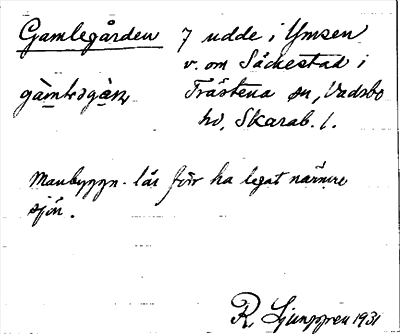 Gamlegården 7 udde i Ymsen
v. om Säckestad i
Trästena sn, Vadsbo
hd, Skarab. l.
Manbyggn. lär förr ha legat närmre
sjön.
R. Ljunggren 1931